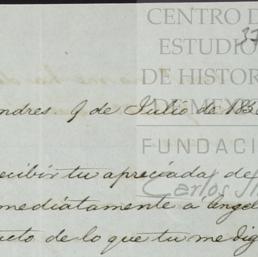 CENTRO D
ESTUDIO
DE HISTOR
DE MEXIC
FUNDACI
Carlos Sl
37
ndres 9 de Julio de 186
ecibir tu apreciada de
mediatamente a angel
ueto de lo que tu me dig